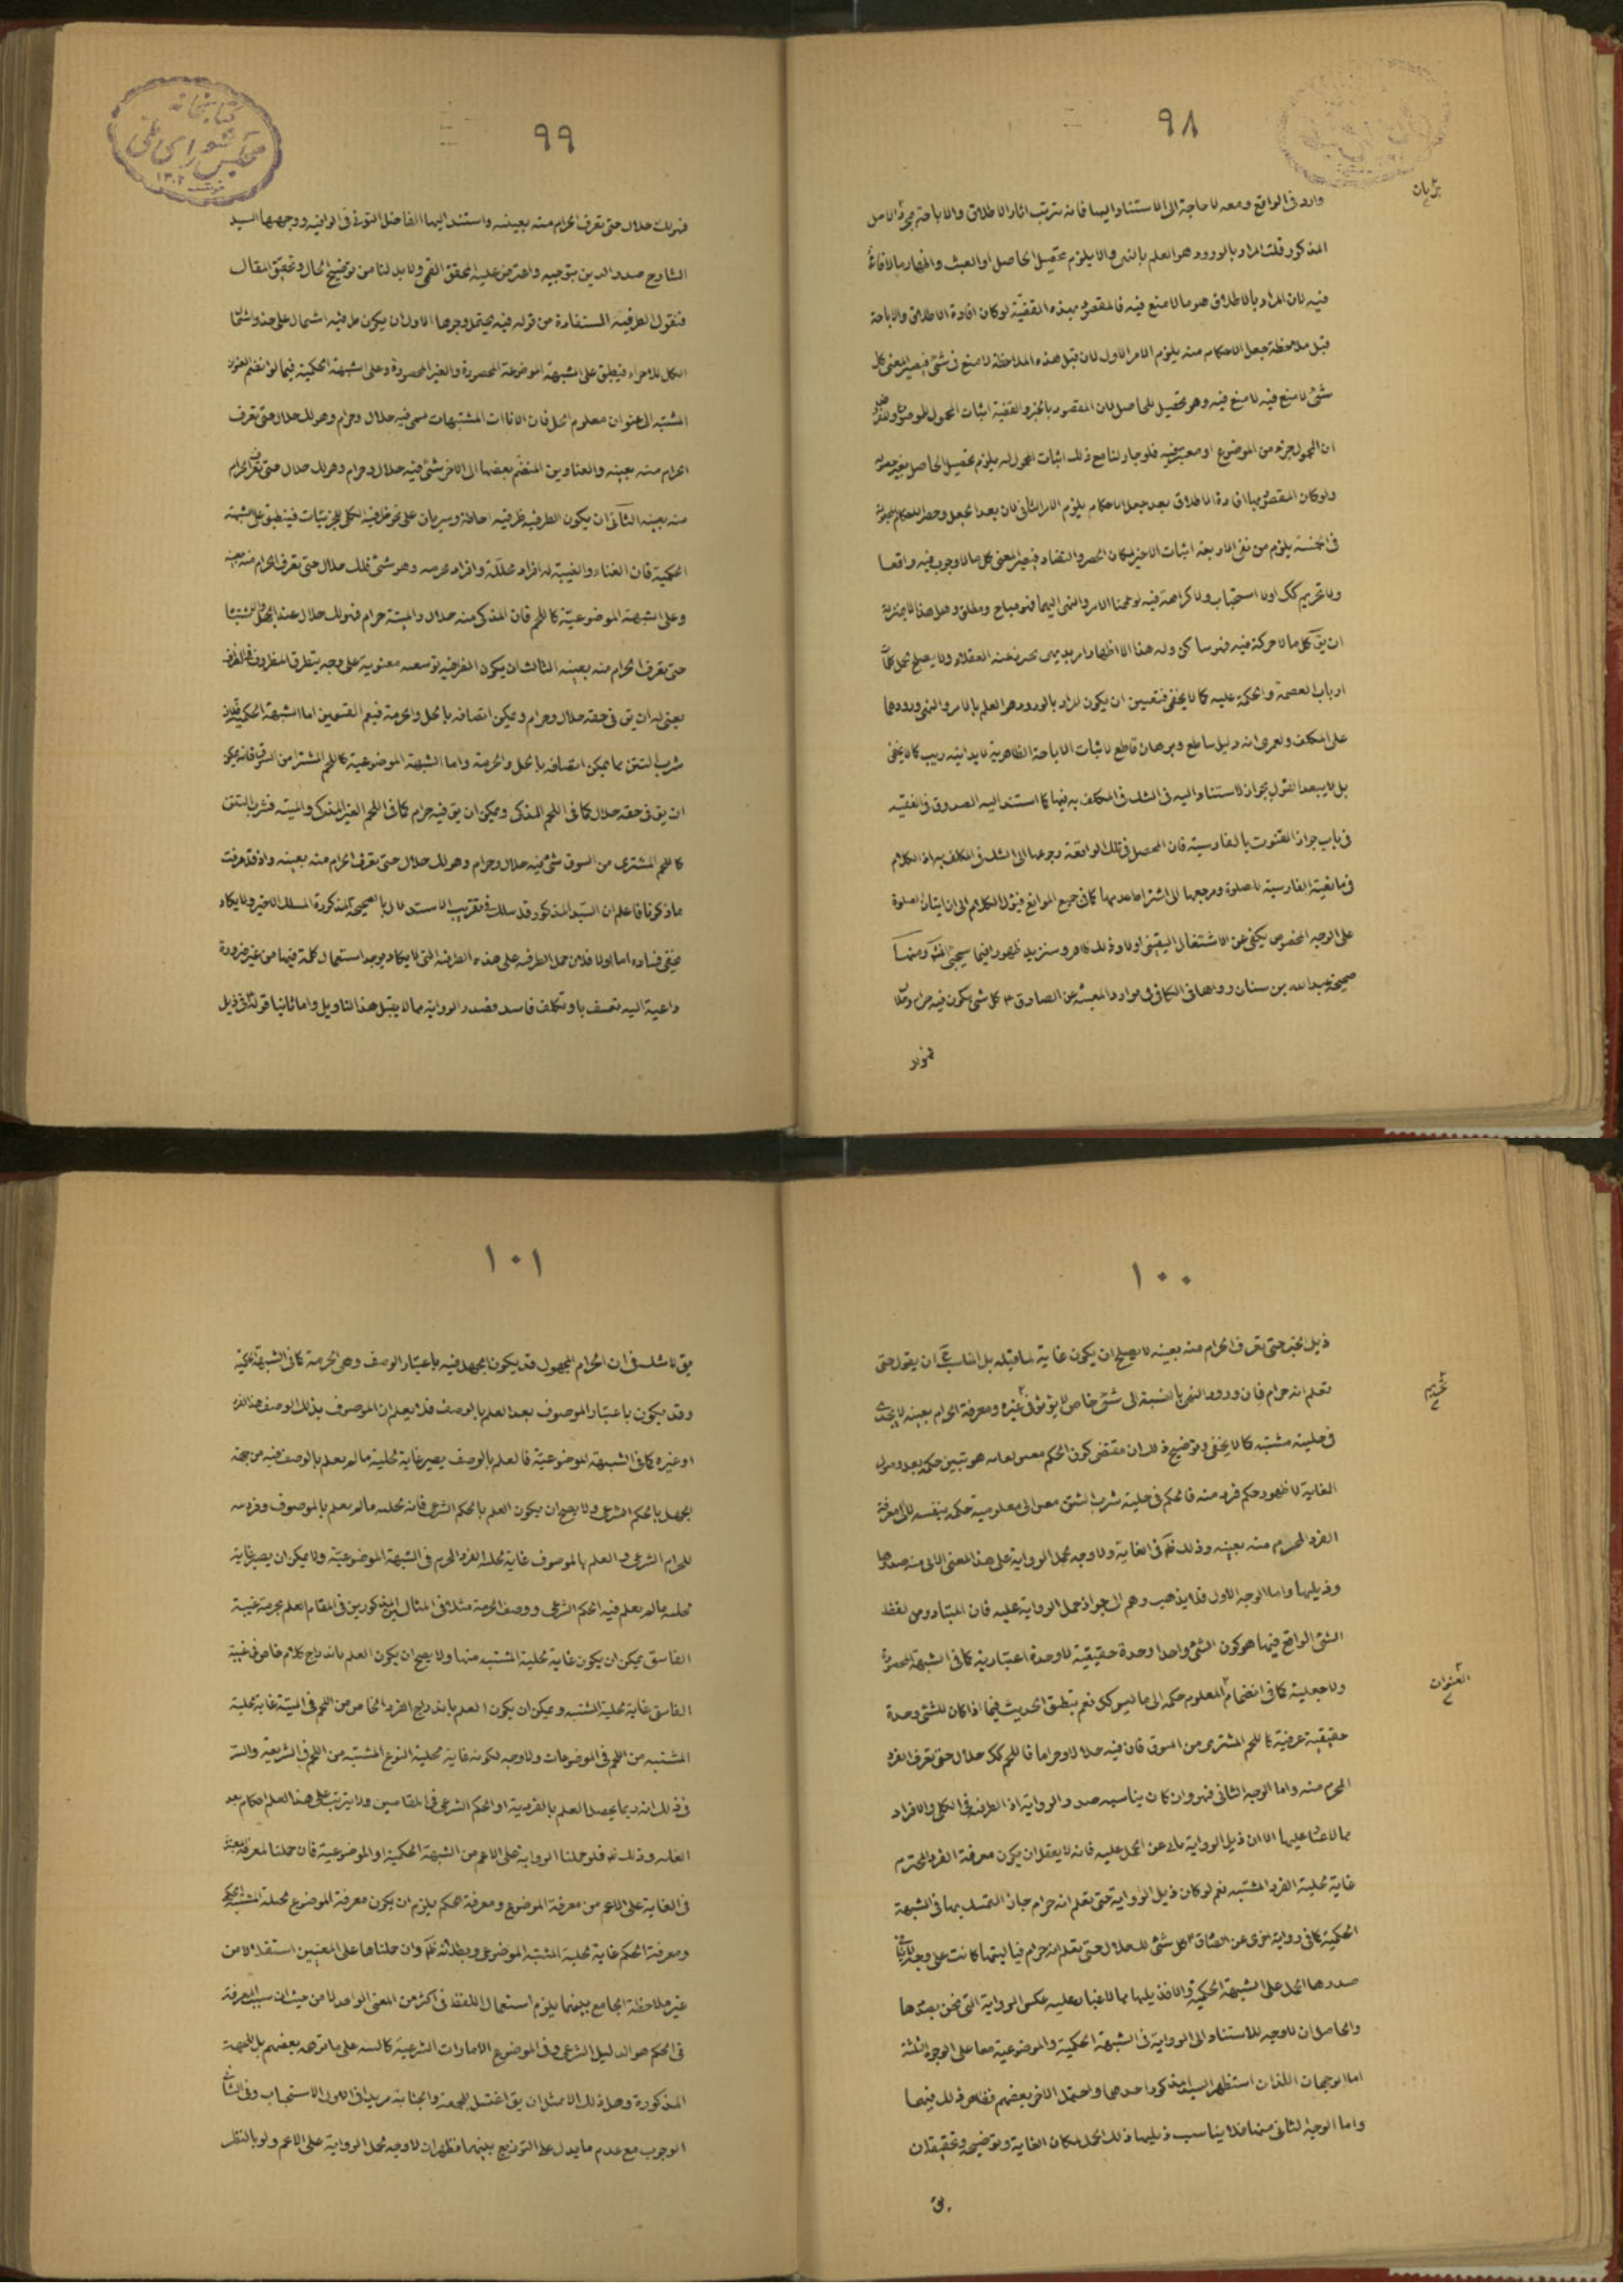 ٩٨
وارد فی الواقع ومعه لا حاجة الی الاستناد الیها فانه یترتب اثار الاطلاق والاباحة
المذکور قلت المراد بالورود هو العلم بالنهی والا یلزم تحصیل الحاصل او العبث
فیه لان المراد بالاطلاق هو ما لا منع فیه فالمقصود بهذه القضیّة لو کان افادة الاطلاق والاباحة
قبل ملاحظة جعل الاحکام منه یلزم الامر الاول لان قبل هذه الملاحظة لا منع فی شئ فیصیر المعنی کل
شئ لا منع فیه لا منع فیه وهو تحصیل للحاصل لان المقصود بالخبر والقضیة اثبات المحمول للموضوع
ان المحمول جزء من الموضوع او معتبر فیه فلو جاز لنا مع ذلک اثبات المحمول له یلزم تحصیل الحاصل
ولو کان المقصود بها افادة الاطلاق بعد جعل الاحکام یلزم الامر الثانی لان بعد الجعل وحصر الاحکام
فی الخمسة یلزم من نفی الاربعة اثبات الاخیر لمکان الحصر والتضاد فیصیر المعنی کل ما لا وجوب فیه واقعا
ولا تحریم کک اولا استحباب ولا کراهة فیه لو عممنا الامر والنهی الیهما فهو مباح ومطلق وهل هذا الا بمنزلة
ان یق کل ما لا حرکة فیه فهو ساکن
ارباب العصمة والحکمة علیه کما لا یخفی فتعین ان یکون المراد بالورود هو العلم بالامر والنهی وورودهما
علی المکلف ولعمری انه دلیل ساطع وبرهان قاطع لاثبات الاباحة الظاهریة لا یدانیه ریب کما لا یخفی
بل لا یبعد القول بجواز الاستناد الیه فی الشک فی المکلف به فیها کما استند الیه الصدوق فی الفقیه
فی باب جواز القنوت بالفارسیة فان المحصل فی تلک الواقعة رجوعها الی الشک فی المکلف به اذ الکلام
فی مانعیة الفارسیة للصلوة ومرجعها الی اشتراط عدمها کما فی جمیع الموانع فیؤل الکلام الی ان ایتان الصلوة
علی الوجه المخصوص یکفی عن الاشتغال الیقینی اولا وذلک ظاهر وسنزید ظهورا فیما سیجئ ومنها
صحیحة عبد الله بن سنان رواها فی الکافی فی موارد المعیشة عن الصادق کل شئ یکون فیه حرام وحلال
فهو لک
٩٩
کتابخانه مجلس شورای ملی
١٣٠٢
فهو لک حلال حتی تعرف الحرام منه بعینه واستند الیها الفاضل التونی فی الوافیه ووجهها السید
الشارح صدر الدین بتوجیه واعترض علیه المحقق القمی ولا بد لنا من توضیح الحال وتحقیق المقال
فنقول الظرفیة المستفادة من قوله فیه یحتمل وجوها الاول ان یکون ظرفیة اشتمال علی حذو اشتمال
الکل للاجزاء فینطبق علی الشبهة الموضوعة المحصورة والغیر المحصورة وعلی الشبهة الحکمیة فیما لو انضم العنوان
المشتبه الی عنوان معلوم الحل فان الاناات المشتبهات شئ فیه حلال وحرام وهو لک حلال حتی تعرف
الحرام منه بعینه والعناوین المنضم بعضها الی الاخر شئ فیه حلال وحرام وهو لک حلال حتی تعرف الحرام
منه بعینه الثانی ان یکون الظرفیة ظرفیة احاطة وسریان علی نحو ظرفیة الکلی للجزئیات فینطبق علی الشبهة
الحکمیة فان الغناء والغیبة له افراد محللة وافراد محرمه وهو شئ فلک حلال حتی تعرف الحرام منه بعینه
وعلی الشبهة الموضوعیّة کاللحم فان المذکی منه حلال والمیتة حرام فهو لک حلال عند الجهل
حتی تعرف الحرام منه بعینه الثالث ان یکون الظرفیة توسعه معنویة علی وجه یتطرق المظروف
یعنی له ان یق فی حقه حلال وحرام ویمکن اتصافه بالحل والحرمة فیعم القسمین اما الشبهة الحکمیة
شرب التتن مما یمکن اتصافه بالحل والحرمة واما الشبهة الموضوعیة کاللحم المشترا من السوق فانه یمکن
ان یق فی حقه حلال کما فی اللحم المذکی ویمکن ان یق فیه حرام کما فی اللحم الغیر المذکی والمیته فشرب التتن
کاللحم المشتری من السوق شئ فیه حلال وحرام وهو لک حلال حتی تعرف الحرام منه بعینه واذ قد عرفت
ما ذکرنا فاعلم ان السّید المذکور قد سلک فی تقریب الاستدلال بالصحیحة المذکورة المسلک الاخیر ولا یکاد
یخفی فساده اما اولا فلان حمل الظرفیه علی هذه الظرفیة التی لا یکاد یوجد استعمال کلمة فیها من غیر ضرورة
داعیة الیه تعسف بارد وتکلف فاسد فصدر الروایة مما لا یقبل هذا التاویل واما ثانیا فلان فی ذیل
١٠٠
ذیل الخبر حتی تعرف الحرام منه بعینه لا یصلح ان یکون غایة لما قبله بل المناسب ان یقول حتی
تعلم انه حرام فان ورود النهی بالنسبة الی شئ خاص لا یؤثر فی غیره ومعرفة الحرام بعینه لا یجدی
تحریم
فی حلیته مشتبه کما لا یخفی وتوضیح ذلک ان مقتضی کون الحکم هو تبین حکمه بعد وصول
الغایة لا ظهور حکم فرد منه فالحکم فی حلیته شرب التتن معلومیة حکمه بنفسه لا الی معرفة
الفرد المحرم منه بعینه وذلک فی الغایة ولا وجه لحمل الروایة علی هذا المعنی الابی منه صدرها
وذیلها واما الوجه الاول فلا یذهب وهم الی جواز حمل الروایة علیه فان المتبادر من لفظ
الشئ الواقع فیها هو کون الشئ واحدا وحدة حقیقیة لا وحدة اعتباریة کما فی الشبهة المحصورة
ولا جعلیة کما فی انضمام المعلوم حکمه الی ما لیس کک نعم ینطبق الحدیث فیما اذا کان للشئ وحدة
العنوان
حقیقیة عرفیة کاللحم المشتری من السوق فان فیه حلالا وحراما فاللحم کک حلال حتی تعرف الفرد
المحرم منه واما الوجه الثانی فهو وان کان یناسبه صدر الروایة اذ الظرفیة فی الکلی والافراد
مما لا غبار علیها الا ان ذیل الروایة مانع عن الحمل علیه فانه لا یعقل ان یکون معرفة الفرد المحرم
غایة لحلیة الفرد المشتبه نعم لو کان ذیل الروایة حتی تعلم انه حرام جاز التمسک بها فی الشبهة
الحکمیة کما فی روایة اخری عن الصادق کل شئ لک حلال حتی تعلم انه حرام فیا لیتها کانت علی وجه
صدرها الحمل علی الشبهة الحکمیة والا فذیلها مما لا غبار علیه عکس الروایة التی نحن بصددها
والحاصل ان لا وجه للاستناد الی الروایة فی الشبهة الحکمیة والموضوعیة معا علی الوجوه الثلثة
اما الوجهان اللذان استظهر السید المذکور احدهما واحتمل الاخر بعضهم فظاهر ذلک فیهما
واما الوجه الثانی منها فلا یناسب ذیلها ذلک الحمل لمکان الغایة وتوضیحه وتحقیقه ان
یق
١٠١
یق لا شک فی ان الحرام المجهول قد یکون الجهل فیه باعتبار الوصف وهی الحرمة کما فی الشبهة الحکمیة
وقد یکون باعتبار الموصوف بعد العلم بالوصف فلا یعلم ان الموصوف بذلک الوصف هذا الفرد
او غیره کما فی الشبهة الموضوعیّة فالعلم بالوصف یصیر غایة لحلیة ما لم یعلم بالوصف فیه من جهة
الجهل بالحکم الشرعی ولا یصح ان یکون العلم بالحکم الشرعی فانه لحلیه ما لم یعلم بالموصوف وفردیته
للحرام الشرعی والعلم بالموصوف غایة لحلیة الفرد المحرم فی الشبهة الموضوعیّة ولا یمکن ان یصیر غایة
لحلیه ما لم یعلم فیه الحکم الشرعی ووصف الحرمة مثلا فی المثالین المذکورین فی المقام العلم بحرمة غیبة
الفاسق یمکن ان یکون غایة لحلیة المشتبه منها ولا یصح ان یکون العلم باندراج کلام خاص فی غیبة
الفاسق غایة لحلیة المشتبه ویمکن ان یکون العلم باندراج الفرد الخاص من اللحم فی المیتة غایة لحلیة
المشتبه من اللحم فی الموضوعات ولا وجه لکونه غایة لحلیة النوع المشتبه من اللحم فی الشریعة والسّر
فی ذلک انه ربما یحصل العلم بالفردیة او الحکم الشرعی فی المقامین ولا یترتب علی هذا العلم احکام بعد
الغایه وذلک فلو حملنا الروایة علی الاعم من الشبهة الحکمیة او الموضوعیة فان حملنا المعرفة
فی الغایة علی الاعم من معرفة الموضوع ومعرفة الحکم یلزم ان یکون معرفة الموضوع لحلیة المشتبه الحکمی
ومعرفة الحکم غایة لحلیة المشتبه الموضوعی وبطلانه وان حملناها علی المعنیین استقلالا من
غیر ملاحظة الجامع بینهما یلزم استعمال اللفظ فی اکثر من المعنی الواحد لا من حیث ان سبب المعرفة
فی الحکم هو الدلیل الشرعی وفی الموضوع الامارات الشرعیة کالبینة علی ما توهمه بعضهم بل للجهة
المذکورة وهل ذلک الا مثل ان یق اغتسل للجمعة والجنابة مریدا فی الاول الاستحباب وفی الثانی
الوجوب مع عدم ما یدل علی التوزیع بینهما فظهر ان لا وجه لحمل الروایة علی الاعم ولو بالنظر